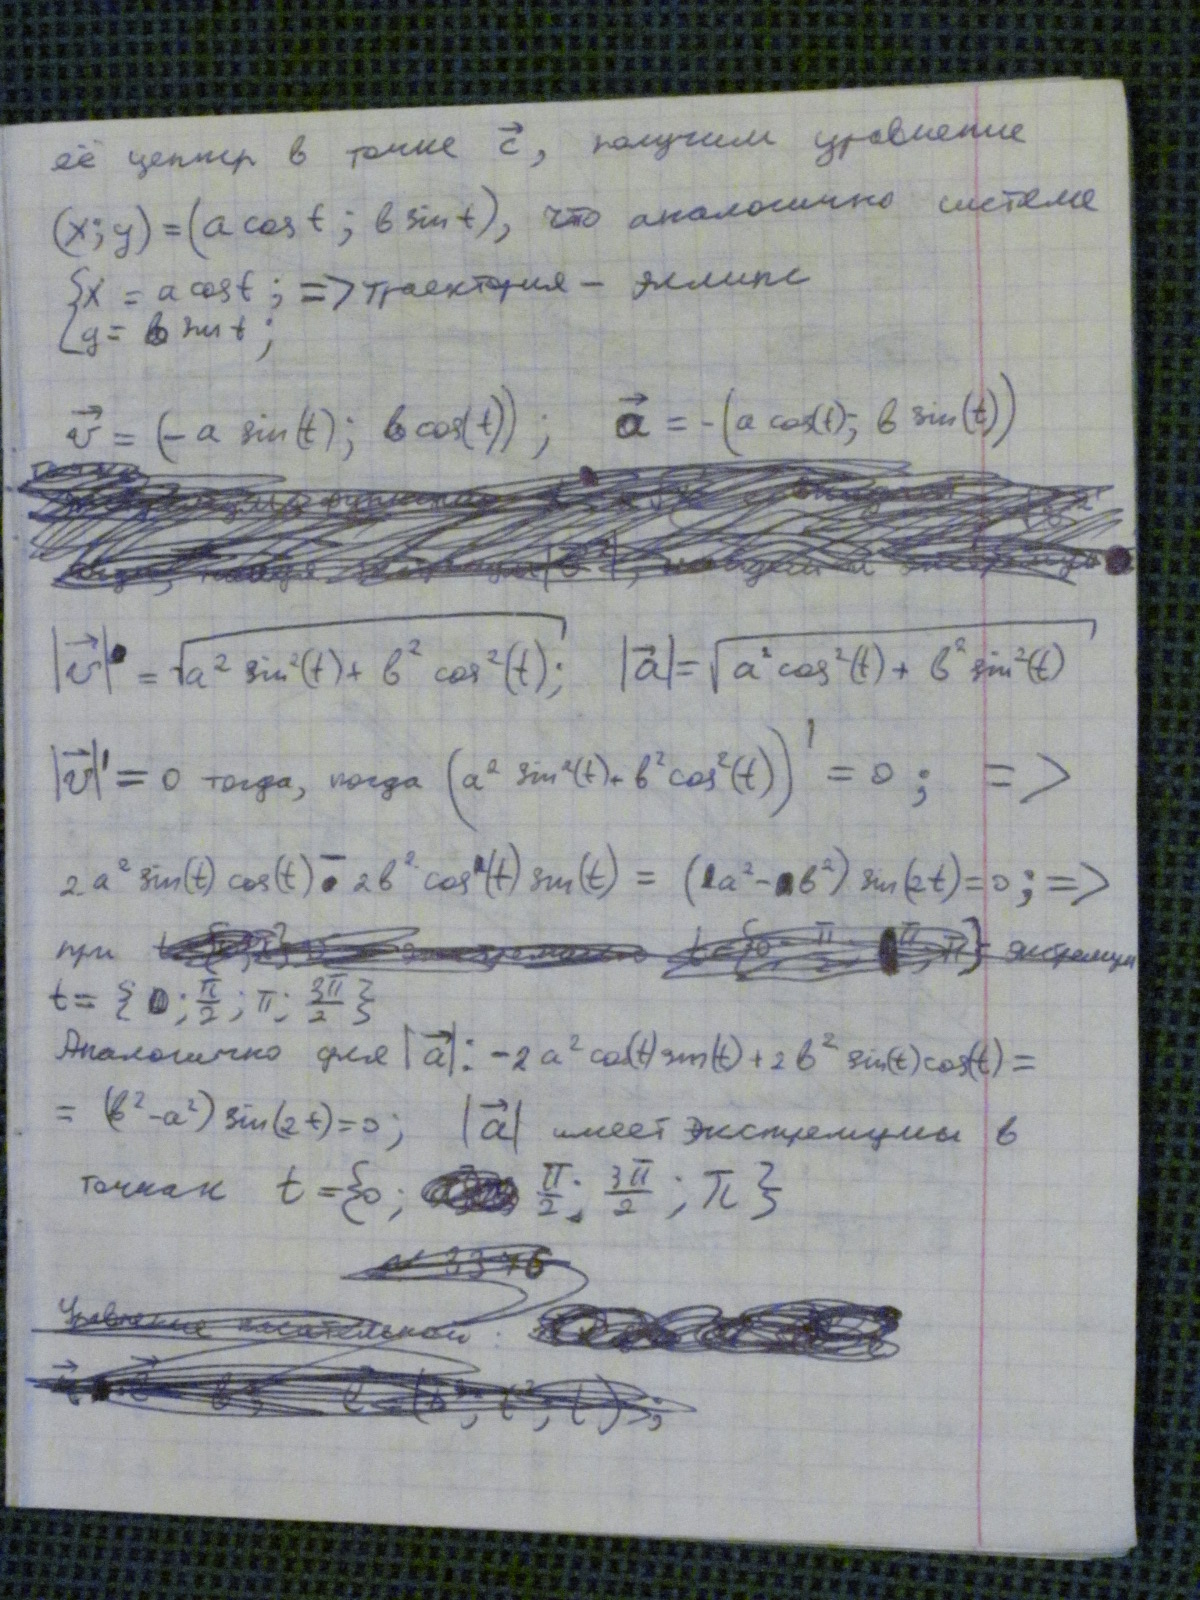 её центр в точке c⃗, получим уравнение
(x; y) = (a cos t ; b sin t), что аналогично системе
{x = a cos t ; => траектория – эллипс
y = b sin t ;
v⃗ = (-a sin(t); b cos(t)) ; a⃗ = -(a cos(t); b sin(t))
|v⃗| = √(a² sin²(t) + b² cos²(t)); |a⃗| = √(a² cos²(t) + b² sin²(t))
|v⃗|' = 0 тогда, когда (a² sin²(t) + b² cos²(t))' = 0 ; =>
2a² sin(t) cos(t) - 2b² cos(t) sin(t) = (a² - b²) sin(2t) = 0 ; =>
при экстремум
t = {0; π/2; π; 3π/2}
Аналогично для |a⃗|: -2a² cos(t) sin(t) + 2b² sin(t) cos(t) =
= (b² - a²) sin(2t) = 0; |a⃗| имеет экстремумы в
точках t = {0; π/2; 3π/2; π}
Уравнение касательной: